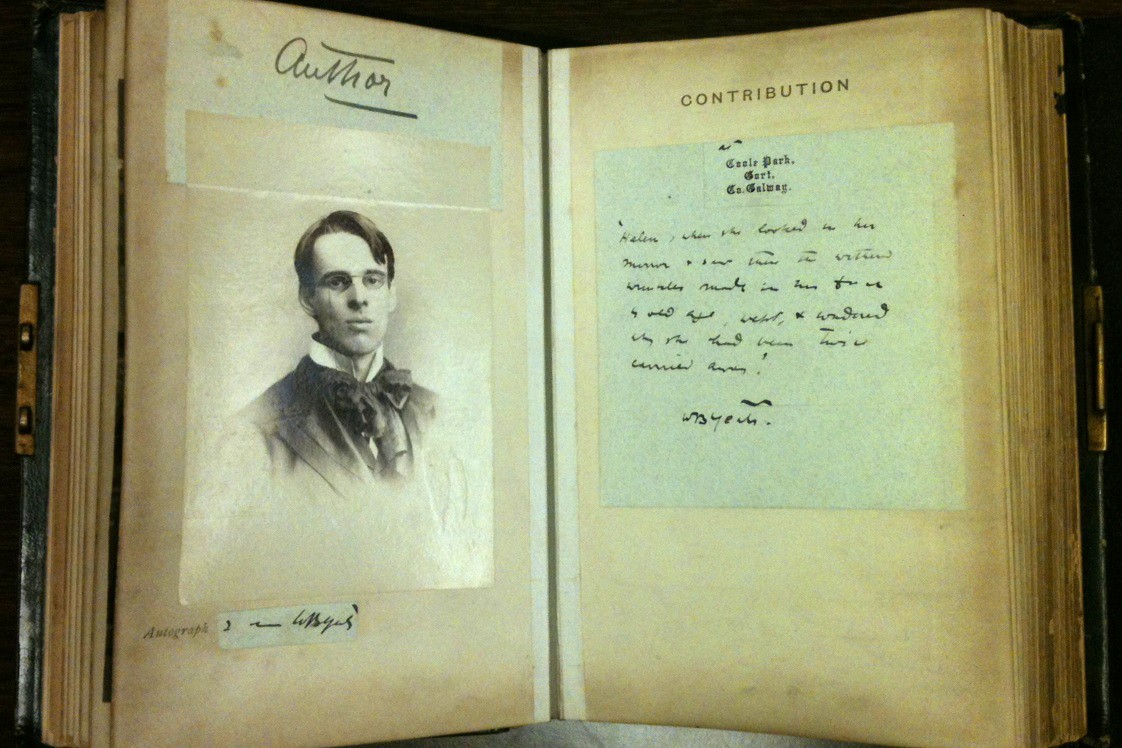 Author
Autograph
WBYeats
CONTRIBUTION
at
Coole Park,
Gort,
Co. Galway.
'Helen, when she looked in her
mirror & saw there the withered
wrinkles made in her face
by old age, wept, & wondered
why she had been twice
carried away.'
WBYeats.